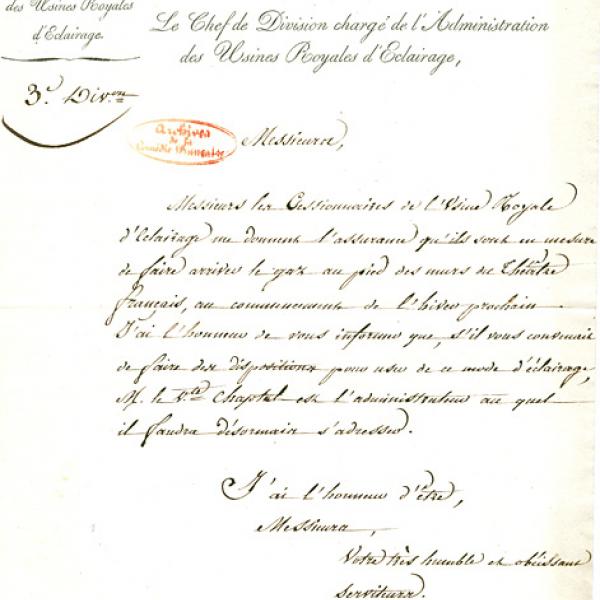 des Usines Royales
d'Eclairage.
3.e Div.on
Le Chef de Division chargé de l'Administration
des Usines Royales d'Eclairage,
Archives
de la
Comédie Française
Messieurs,
Messieurs les Cessionnaires de l'Usine Royale
d'Eclairage me donnent l'assurance qu'ils sont en mesure
de faire arriver le gaz au pied des murs du Théâtre
français, au commencement de l'hiver prochain.
J'ai l'honneur de vous informer que, s'il vous convenait
de faire des dispositions pour user de ce mode d'éclairage,
M. le V.te Chaptal est l'administrateur au quel
il faudra désormais s'adresser.
J'ai l'honneur d'être,
Messieurs,
Votre très humble et obéissant
serviteur.